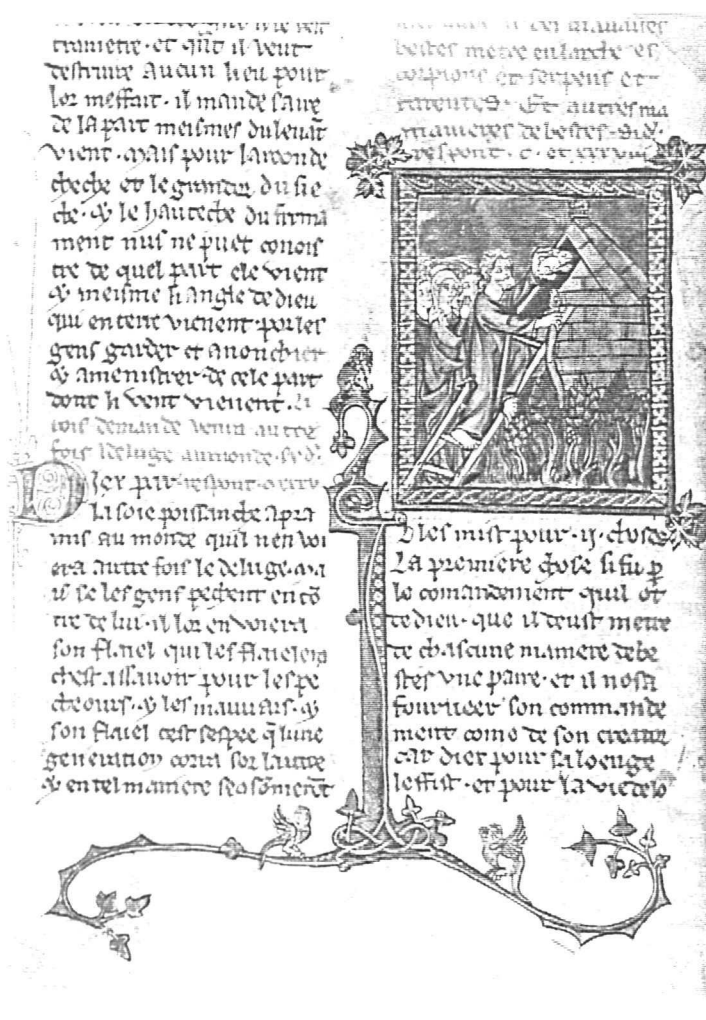 trametre · et qnt il veut
destruire aucun lieu pour
lor meffait · il mande faire
de la part meismes du leuāt
vient · mais pour la roonde
theche et le grandez du sie
cle · ⁊ le hauteche du firma
ment nus ne puet conois
tre de quel part ele vient
⁊ meisme li angle de dieu
qui en terre vienent por les
gens garder et anonchier
⁊ amenistrer · de cele part
dont li vent vienent · Li
rois demande venra autre
fois deluge au monde · Sydr̄
Diex par respont · 
la soie poissanche a pra
mis au monde quil n en voi
era autre fois le deluge · ma
is se les gens pechent en cō
tre de lui · il lor en voiera
son flaiel qui les flaielera
chest assauoir pour les pe
cheours · ⁊ les mauuais · ⁊
son flaiel cest sespee q̄ lune
generation corra sor lautre
⁊ en tel maniere
mauaises
bestes metre en larche es
corpions et serpens et
Et autres ma
manieres de bestes · Sidr̄
respont · c · et xxxviii
les mist pour · ij · choses
La premiere chose si fu p̲
le comandement quil ot
de dieu · que il deust metre
de chascune maniere de be
stes vne paire · et il nosa
son commande
ment come de son creatur
car diex pour sa loenge
les fist · et pour la vie de lo